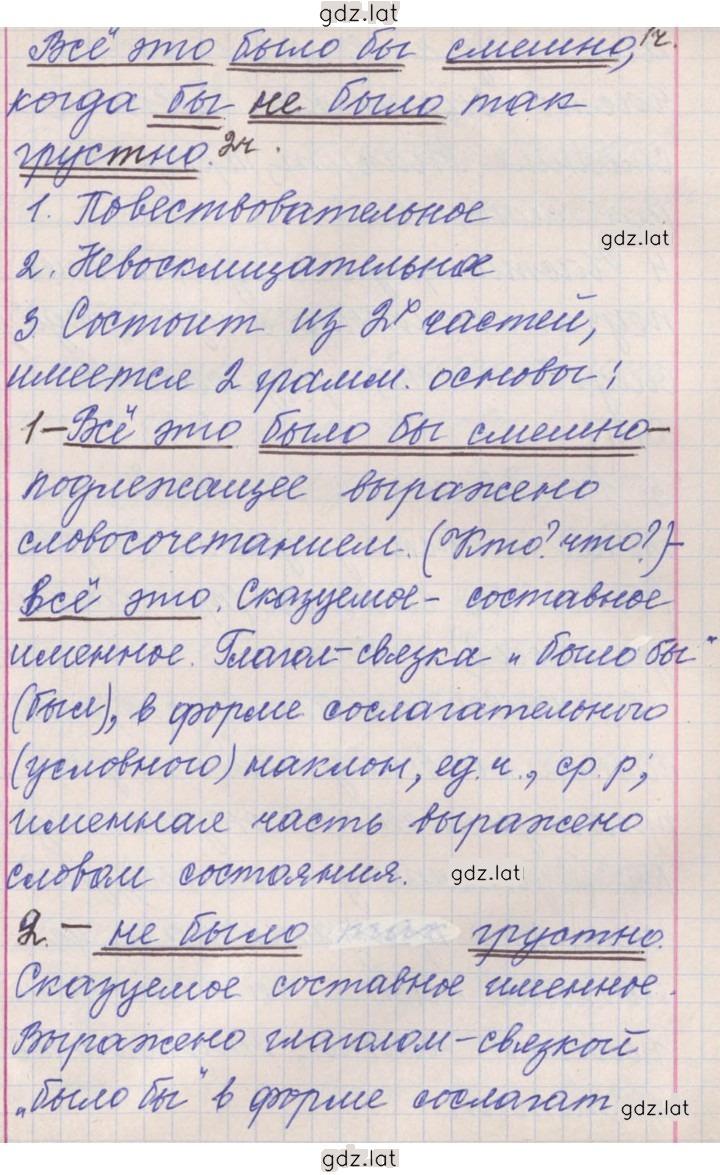 gdz.lat
Всё это было бы смешно, 1ч.
когда бы не было так
грустно. 2ч.
1. Повествовательное
gdz.lat
2. Невосклицательное
3. Состоит из 2х частей,
имеется 2 грамм. основы:
1 - Всё это было бы смешно -
подлежащее выражено
словосочетанием. (Кто? что?) -
всё это. Сказуемое - составное
именное. Глагол-связка "было бы"
(был), в форме сослагательного
(условного) наклон, ед. ч., ср. р;
именная часть выражено
словом состояния.
gdz.lat
2. - не было так грустно.
Сказуемое составное именное.
Выражено глаголом-связкой
"было бы" в форме сослагат
gdz.lat
gdz.lat